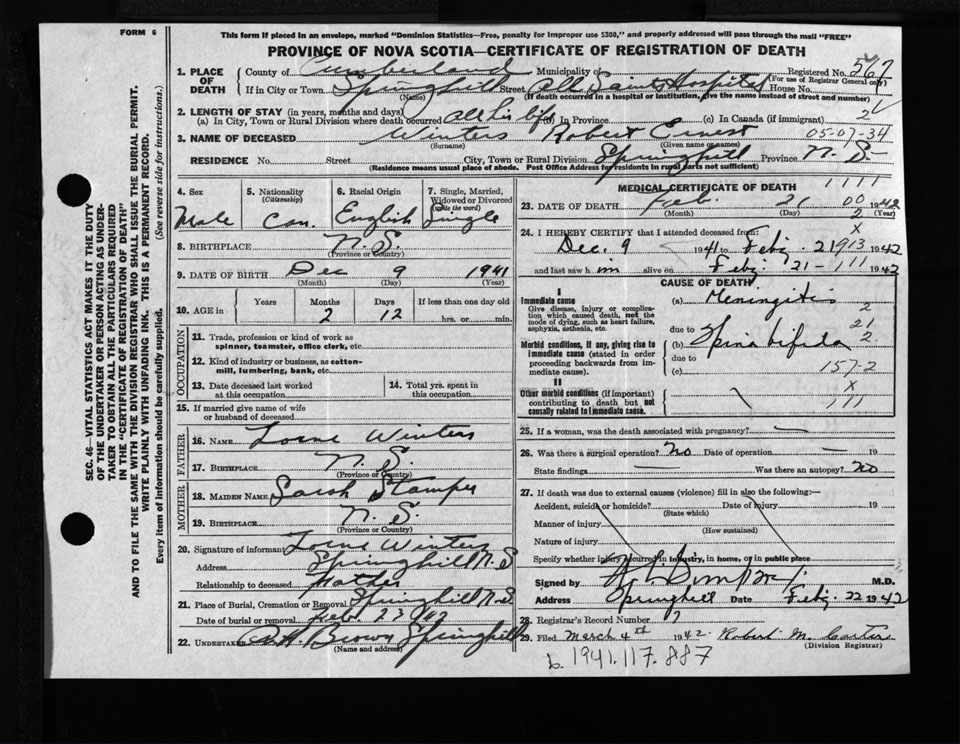 FORM 6
This form if placed in an envelope, marked "Dominion Statistics—Free, penalty for improper use $300," and properly addressed will pass through the mail "FREE"
PROVINCE OF NOVA SCOTIA—CERTIFICATE OF REGISTRATION OF DEATH
1. PLACE OF DEATH
County of Cumberland Municipality of Registered No. 567
(For use of Registrar General only)
If in City or Town Springhill Street All Saints Hospital House No.
(Name) (If death occurred in a hospital or institution, give the name instead of street and number)
2. LENGTH OF STAY (in years, months and days)
(a) In City, Town or Rural Division where death occurred all his life (b) In Province (c) In Canada (if immigrant)
3. NAME OF DECEASED Winters Robert Ernest 05-07-34
(Surname) (Given name or names)
RESIDENCE No. Street City, Town or Rural Division Springhill Province N. S.
(Residence means usual place of abode. Post Office Address for residents in rural parts not sufficient)
4. Sex Male
5. Nationality (Citizenship) Can.
6. Racial Origin English
7. Single, Married, Widowed or Divorced (write the word) Single
8. BIRTHPLACE N. S.
(Province or Country)
9. DATE OF BIRTH Dec 9 1941
(Month) (Day) (Year)
10. AGE in Years Months 2 Days 12 If less than one day old hrs. or min.
OCCUPATION
11. Trade, profession or kind of work as spinner, teamster, office clerk, etc.
12. Kind of industry or business, as cotton-mill, lumbering, bank, etc.
13. Date deceased last worked at this occupation
14. Total yrs. spent in this occupation
15. If married give name of wife or husband of deceased
FATHER
16. NAME Lorne Winters
17. BIRTHPLACE N. S.
(Province or Country)
MOTHER
18. MAIDEN NAME Sarah Stamper
19. BIRTHPLACE N. S.
(Province or Country)
20. Signature of informant Lorne Winters
Address Springhill N. S
Relationship to deceased Father
21. Place of Burial, Cremation or Removal Springhill N. S
Date of burial or removal Feb. 23 1942
22. UNDERTAKER Brown Springhill
(Name and address)
MEDICAL CERTIFICATE OF DEATH 1111
23. DATE OF DEATH Feb. 21 1942
(Month) (Day) (Year)
24. I HEREBY CERTIFY that I attended deceased from:
Dec. 9 1941 to Feb. 21 1942
and last saw him alive on Feb. 21 1942
CAUSE OF DEATH
I
Immediate cause
Give disease, injury or complication which caused death, not the mode of dying, such as heart failure, asphyxia, asthenia, etc.
(a) Meningitis
due to
Morbid conditions, if any, giving rise to immediate cause (stated in order proceeding backwards from immediate cause).
(b) Spina bifida
due to
(c) 157-2
II
Other morbid conditions (if important) contributing to death but not causally related to immediate cause.
X
111
25. If a woman, was the death associated with pregnancy? —
26. Was there a surgical operation? no Date of operation — 19
State findings — Was there an autopsy? no
27. If death was due to external causes (violence) fill in also the following:
Accident, suicide or homicide? Date of injury 19
(State which)
Manner of injury
(How sustained)
Nature of injury
Specify whether injury occurred in industry, in home, or in public place
Signed by M.D.
Address Springhill Date Feb. 22 1942
28. Registrar's Record Number 7
29. Filed March 4th 1942. Robert M. Carter
(Division Registrar)
1941.117.887
SEC. 46—VITAL STATISTICS ACT MAKES IT THE DUTY
OF THE UNDERTAKER OR PERSON ACTING AS UNDER-
TAKER TO OBTAIN ALL THE PARTICULARS REQUIRED
IN THE "CERTIFICATE OF REGISTRATION OF DEATH"
AND TO FILE THE SAME WITH THE DIVISION REGISTRAR WHO SHALL ISSUE THE BURIAL PERMIT.
WRITE PLAINLY WITH UNFADING INK. THIS IS A PERMANENT RECORD.
Every item of information should be carefully supplied. (See reverse side for instructions.)